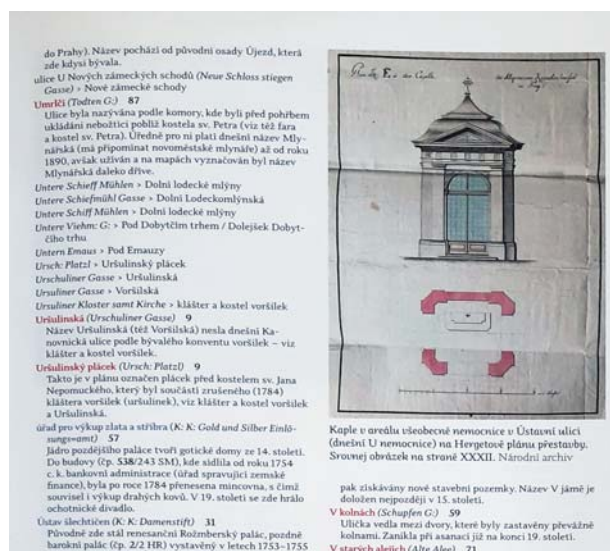 do Prahy). Název pochází od původní osady Újezd, která
zde kdysi bývala.
ulice U Nových zámeckých schodů (Neue Schloss stiegen
Gasse) > Nové zámecké schody
Umrlčí (Todten G:) 87
Ulice byla nazývána podle komory, kde byli před pohřbem
ukládáni nebožtíci poblíž kostela sv. Petra (viz též fara
a kostel sv. Petra). Úředně pro ni platí dnešní název Mly-
nářská (má připomínat novoměstské mlynáře) až od roku
1890, avšak užíván a na mapách vyznačován byl název
Mlynářská daleko dříve.
Untere Schieff Mühlen > Dolní lodecké mlýny
Untere Schiefmühl Gasse > Dolní Lodeckomlýnská
Untere Schiff Mühlen > Dolní lodecké mlýny
Untere Viehm: G: > Pod Dobytčím trhem / Dolejšek Dobyt-
čího trhu
Untern Emaus > Pod Emauzy
Ursch: Platzl > Uršulinský plácek
Urschuliner Gasse > Uršulinská
Ursuliner Gasse > Voršilská
Ursuliner Kloster samt Kirche > klášter a kostel voršilek
Uršulinská (Urschuliner Gasse) 9
Název Uršulinská (též Voršilská) nesla dnešní Ka-
novnická ulice podle bývalého konventu voršilek – viz
klášter a kostel voršilek.
Uršulinský plácek (Ursch: Platzl) 9
Takto je v plánu označen plácek před kostelem sv. Jana
Nepomuckého, který byl součástí zrušeného (1784)
kláštera voršilek (uršulinek), viz klášter a kostel voršilek
a Uršulinská.
úřad pro výkup zlata a stříbra (K: K: Gold und Silber Einlö-
sungs=amt) 57
Jádro pozdějšího paláce tvoří gotické domy ze 14. století.
Do budovy (čp. 538/243 SM), kde sídlila od roku 1754
c. k. bankovní administrace (úřad spravující zemské
finance), byla po roce 1784 přenesena mincovna, s čímž
souvisel i výkup drahých kovů. V 19. století se zde hrálo
ochotnické divadlo.
Ústav šlechtičen (K: K: Damenstift) 31
Původně zde stál renesanční Rožmberský palác, pozdně
barokní palác (čp. 2/2 HR) vystavěný v letech 1753–1755
Kaple v areálu všeobecné nemocnice v Ústavní ulici
(dnešní U nemocnice) na Hergetově plánu přestavby.
Srovnej obrázek na straně XXXII. Národní archiv
pak získávány nové stavební pozemky. Název V jámě je
doložen nejpozději v 15. století.
V kolnách (Schupfen G:) 59
Ulička vedla mezi dvory, které byly zastavěny převážně
kolnami. Zanikla při asanaci již na konci 19. století.
V starých alejích (Alte Alee) 71